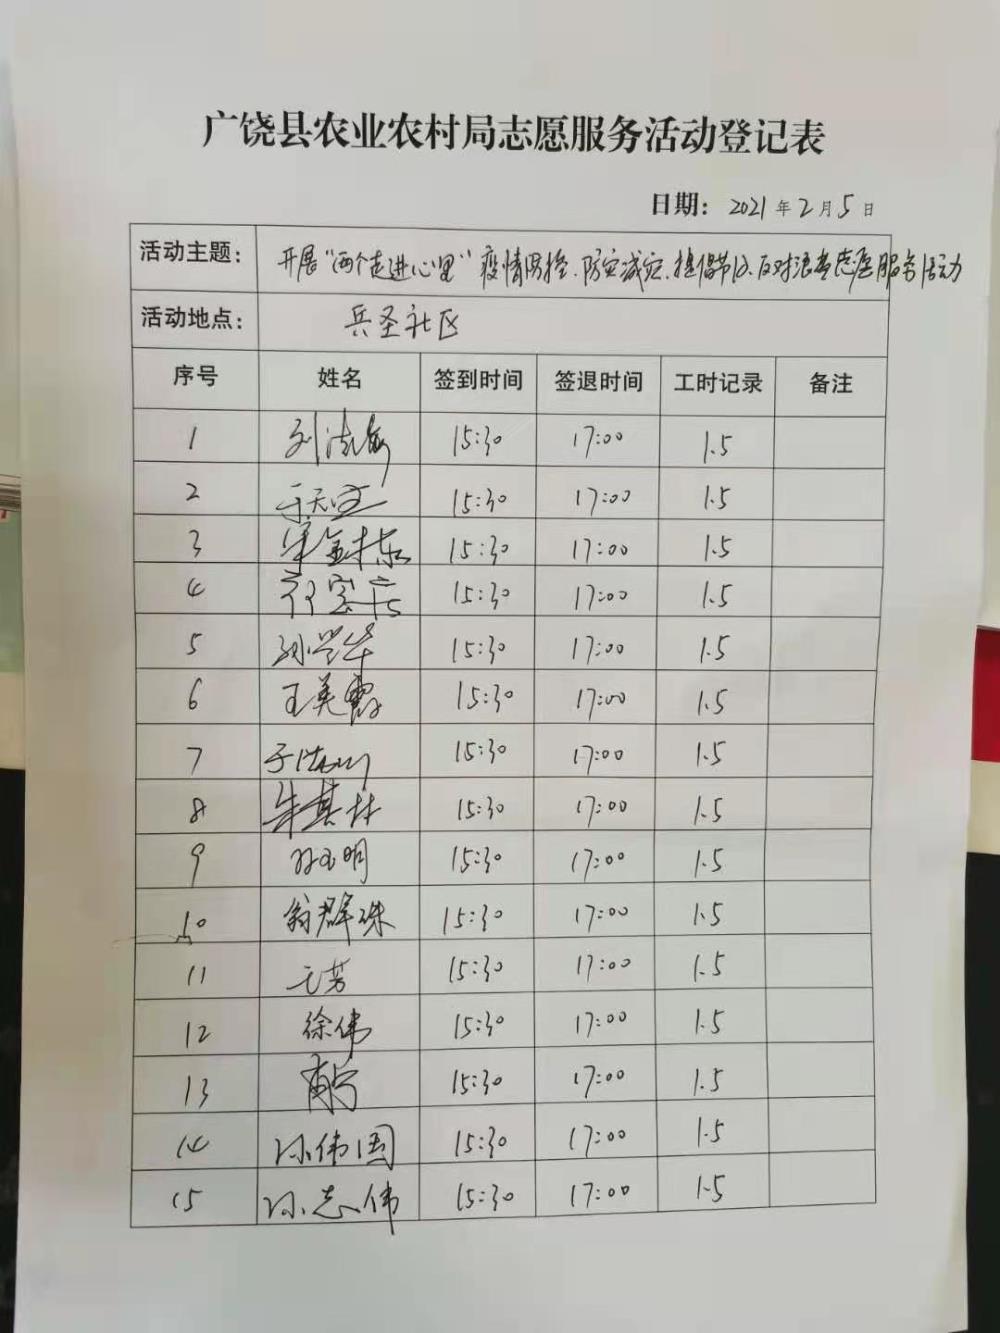 广饶县农业农村局志愿服务活动登记表
日期: 2021年2月5日
活动主题: 开展"两个走进心里"疫情防控、防灾减灾、提倡节约、反对浪费志愿服务活动
活动地点: 兵圣社区
序号 姓名 签到时间 签退时间 工时记录 备注
1 15:30 17:00 1.5
2 15:30 17:00 1.5
3 15:30 17:00 1.5
4 15:30 17:00 1.5
5 孙兴华 15:30 17:00 1.5
6 王美霞 15:30 17:00 1.5
7 15:30 17:00 1.5
8 朱其林 15:30 17:00 1.5
9 孙玉明 15:30 17:00 1.5
10 翁群珠 15:30 17:00 1.5
11 王芳 15:30 17:00 1.5
12 徐伟 15:30 17:00 1.5
13 15:30 17:00 1.5
14 孙伟国 15:30 17:00 1.5
15 孙志伟 15:30 17:00 1.5